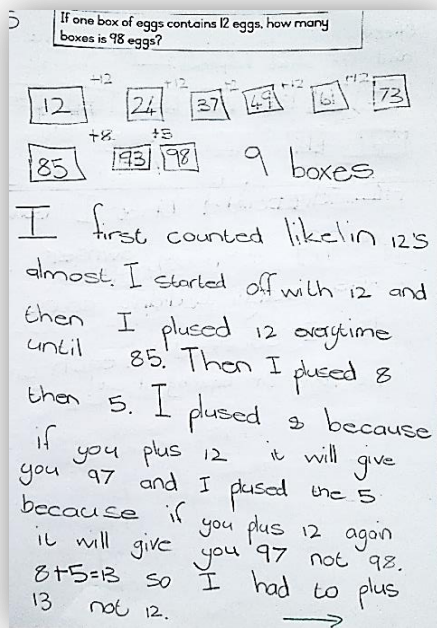 If one box of eggs contains 12 eggs, how many
boxes is 98 eggs?
+12 +12 +12 +12
12 24 37 49 61 73
+8 +5
85 93 98 9 boxes
I first counted like in 12's
almost. I started off with 12 and
then I plused 12 everytime
until 85. Then I plused 8
then 5. I plused 8 because
if you plus 12 it will give
you 97 and I plused the 5
because if you plus 12 again
it will give you 97 not 98.
8+5=13 so I had to plus
13 not 12.